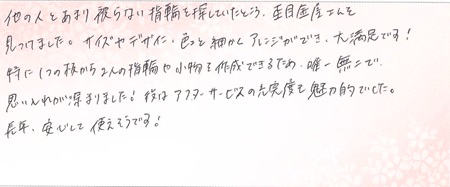 他の人とあまり被らない指輪を探していたところ、杢目金屋さんを
見つけました。サイズやデザイン、色など細かくアレンジができ、大満足です!
特に1つの板から2人の指輪や小物を作成できるため、唯一無二で、
思い入れが深まりました!後はアフターサービスの充実度も魅力的でした。
長年、安心して使えそうです!